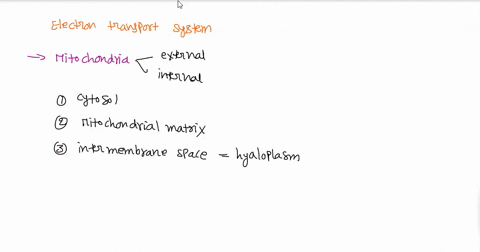 Electron transport system
→ Mitochondria external
internal
① cytosol
② Mitochondrial matrix
③ intermembrane space = hyaloplasm